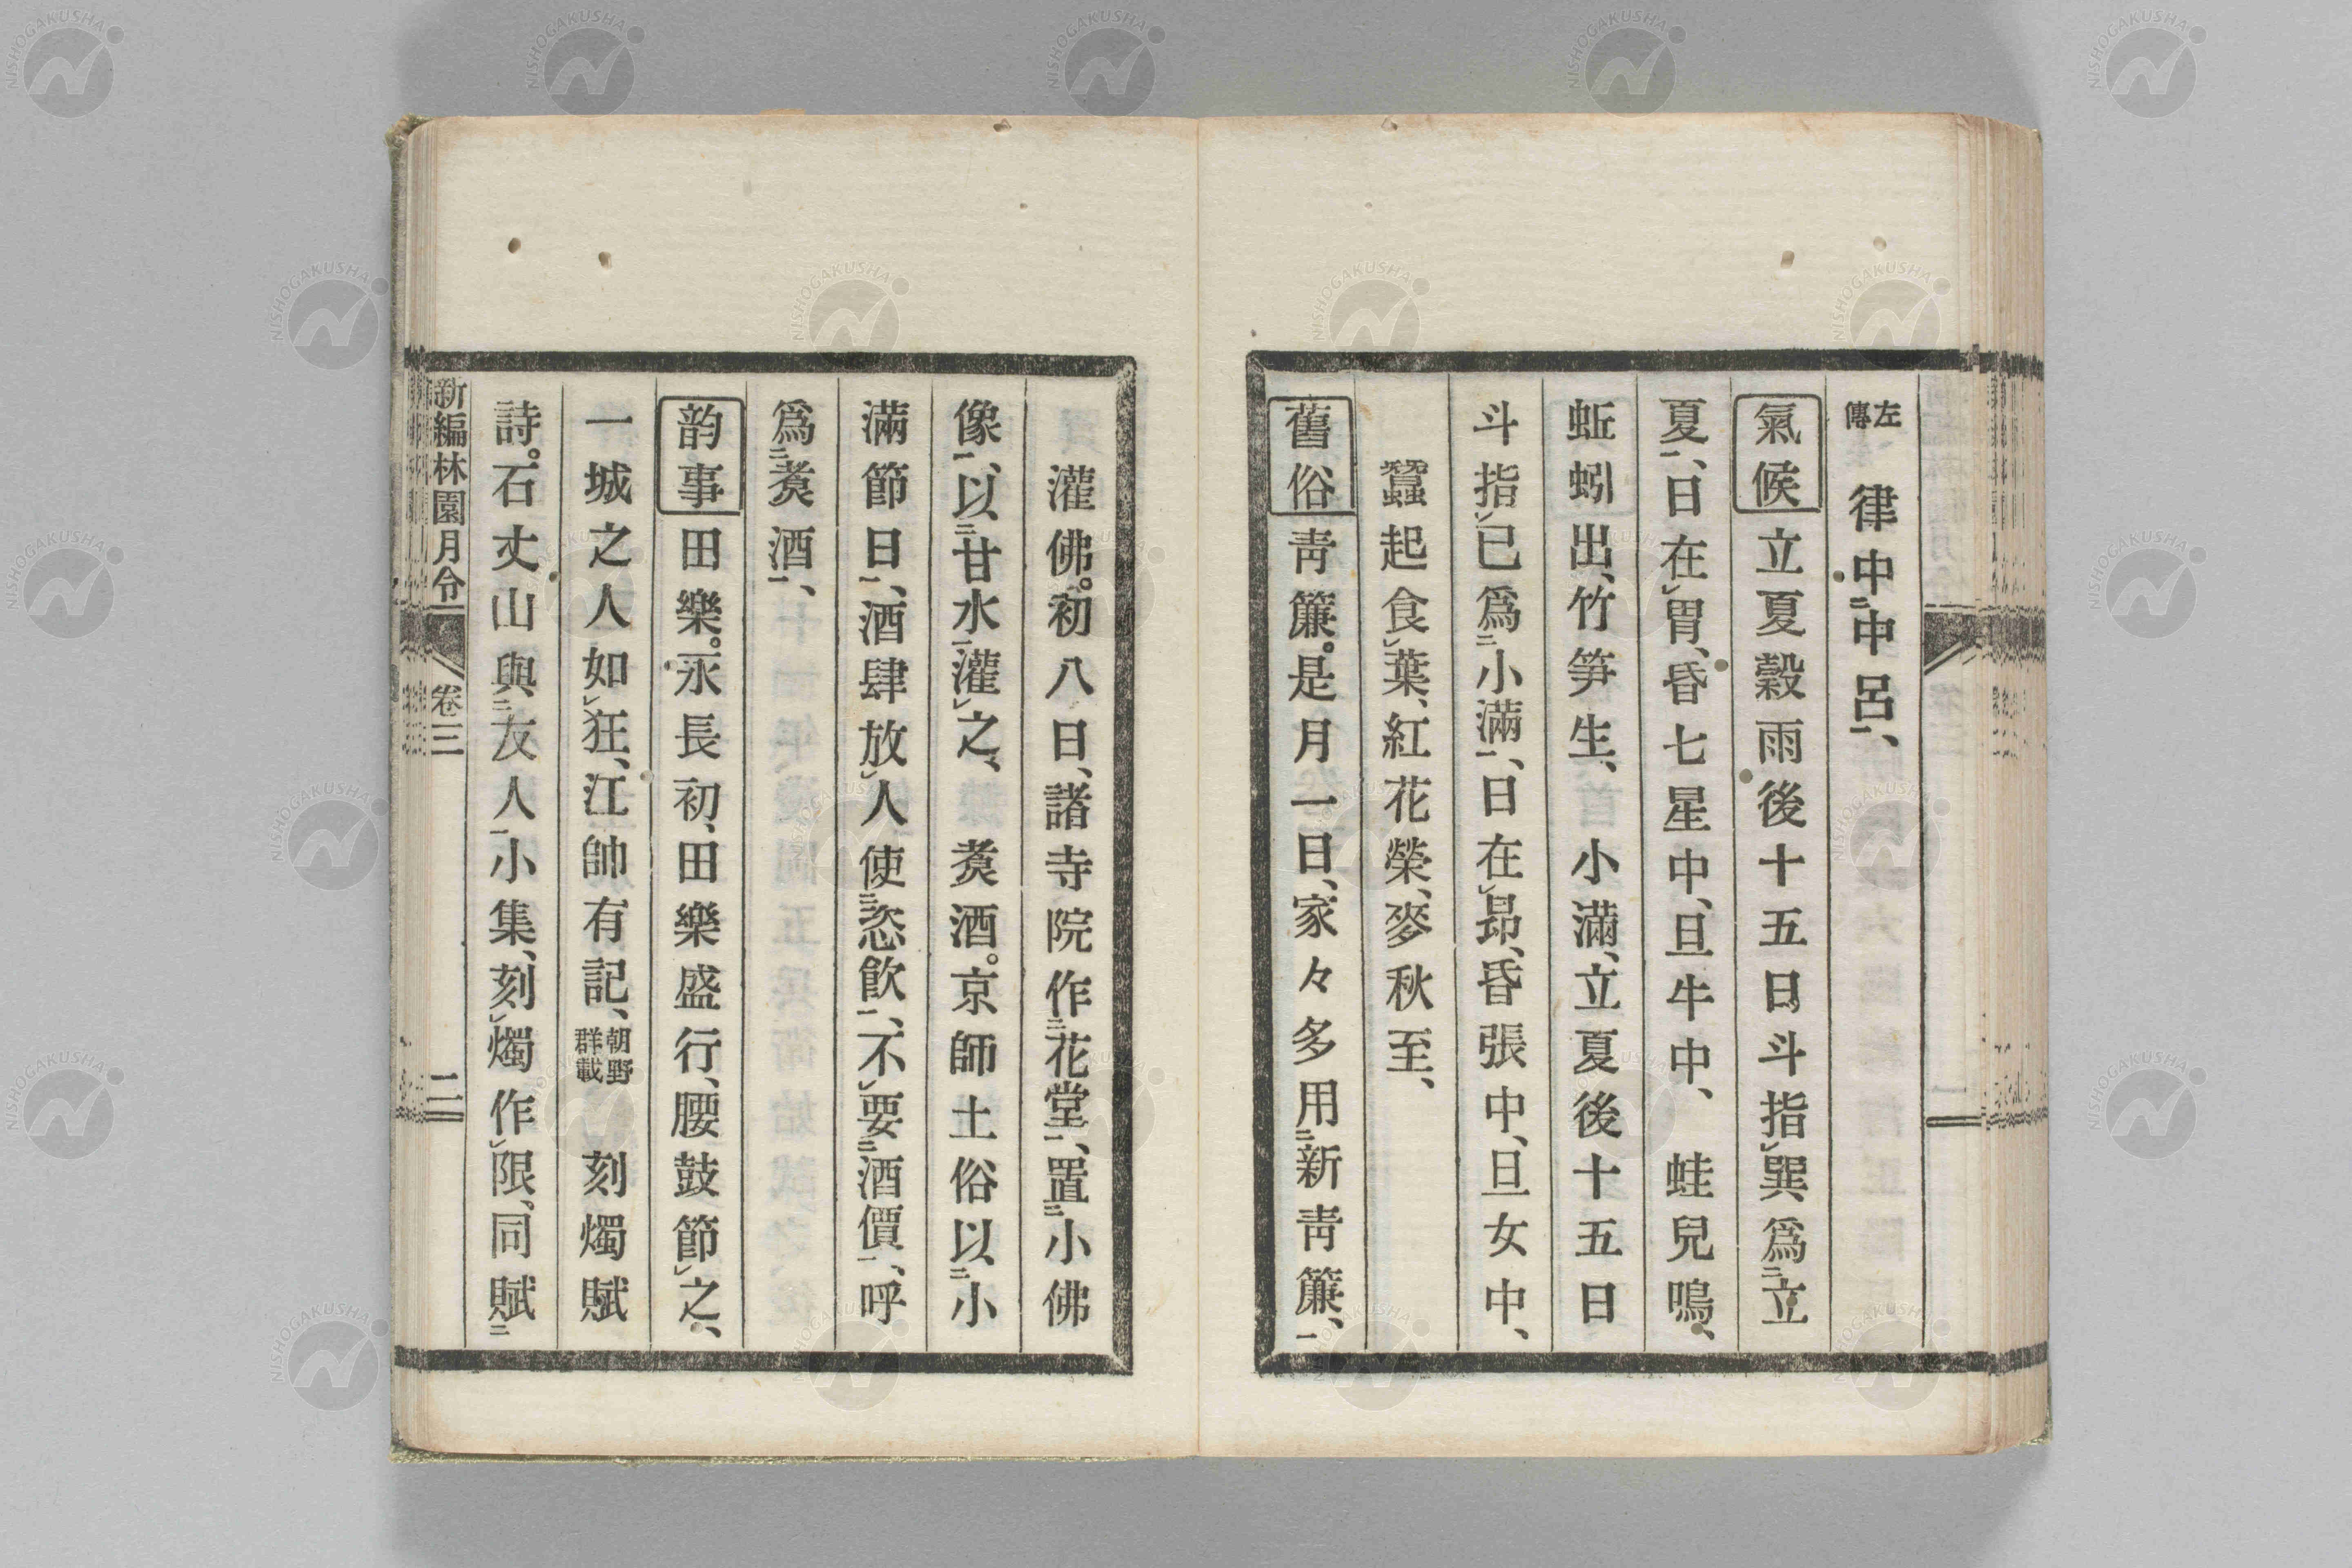 左傳　律中中呂、
氣候　立夏穀雨後十五日斗指巽爲立
夏、日在胃、昏七星中、旦牛中、　蛙兒鳴、
蚯蚓出、竹笋生、　小滿、立夏後十五日
斗指巳爲小滿、日在昴、昏張中、旦女中、
蠶起食葉、紅花榮、麥秋至、
舊俗　靑簾。是月一日、家々多用新靑簾、
灌佛。初八日、諸寺院作花堂、置小佛
像、以甘水灌之、　煑酒。京師土俗以小
滿節日、酒肆放人使恣飮、不要酒價、呼
爲煑酒、
韵事　田樂。永長初、田樂盛行、腰鼓節之、
一城之人如狂、江帥有記、朝野群載　刻燭賦
詩。石丈山與友人小集、刻燭作限、同賦
新編林園月令　卷三　二